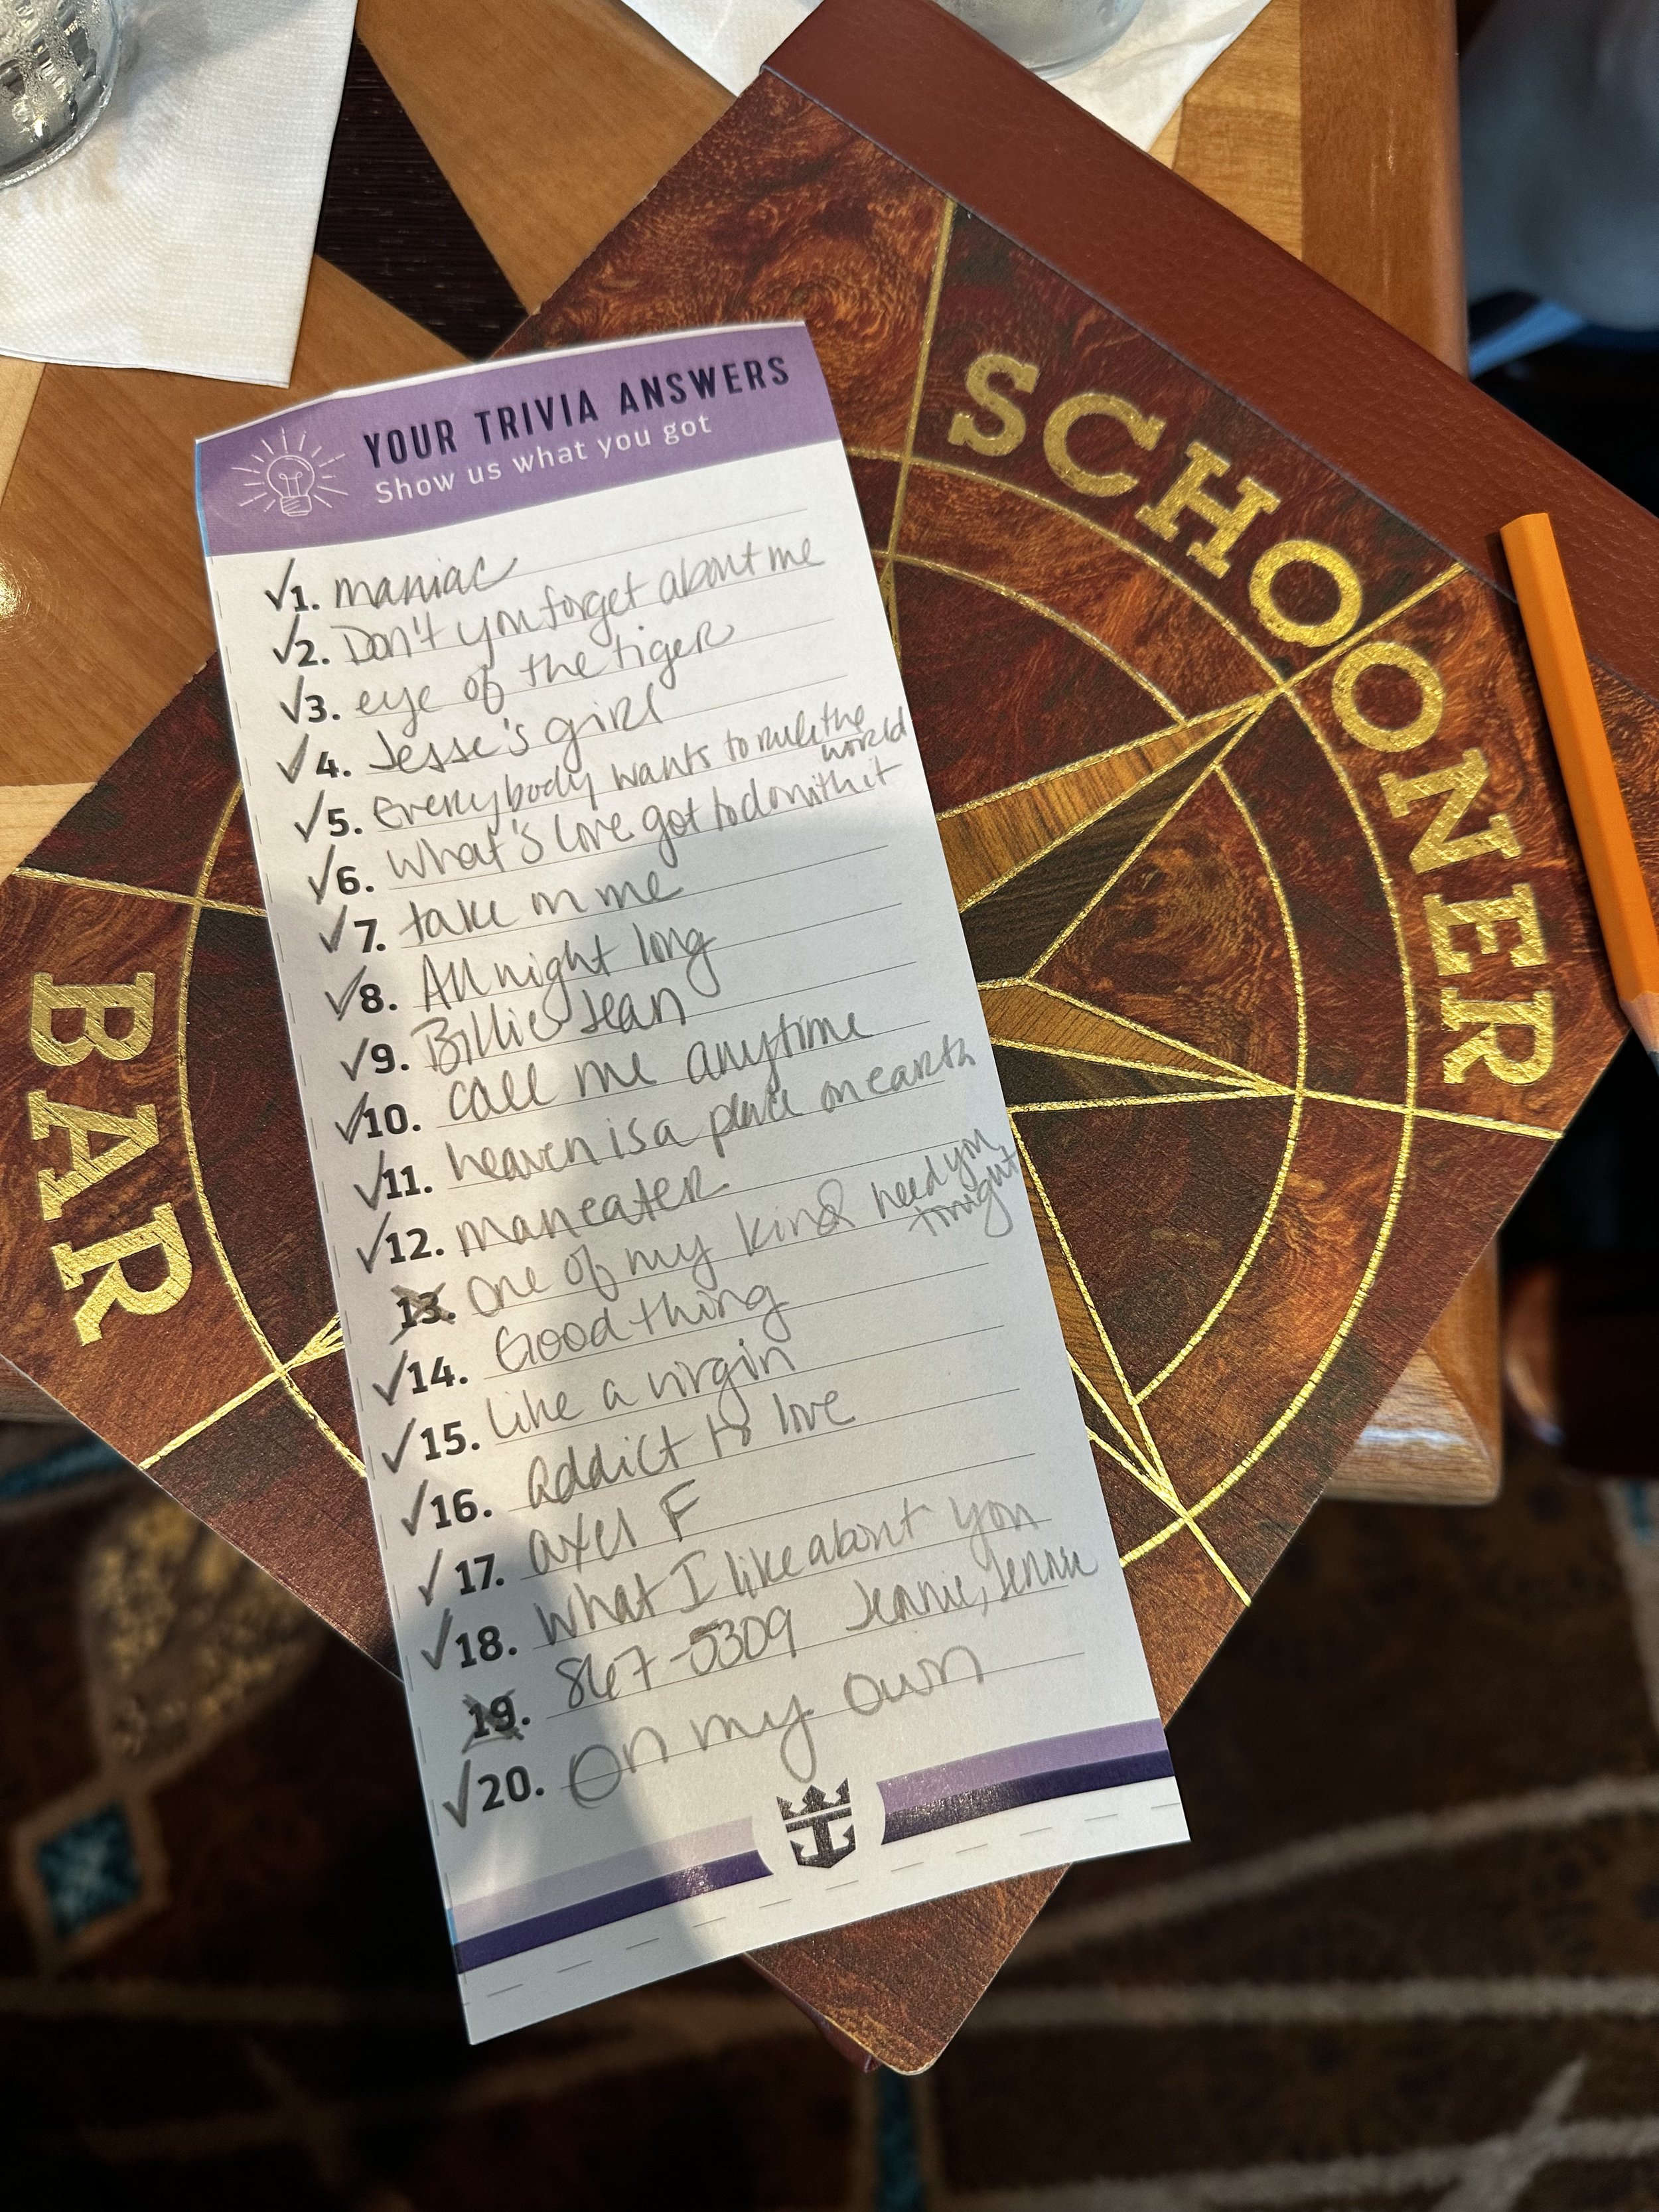 YOUR TRIVIA ANSWERS
Show us what you got
1. maniac
2. Don't you forget about me
3. eye of the tiger
4. Jesse's girl
5. Everybody wants to rule the world
6. What's love got to do with it
7. take on me
8. All night long
9. Billie Jean
10. call me anytime
11. heaven is a place on earth
12. maneater
13. One of my kind need you tonight
14. Good thing
15. Like a virgin
16. addict to love
17. axel F
18. What I like about you
19. 867-5309 Jennie, Jennie
20. On my own
SCHOONER
BAR